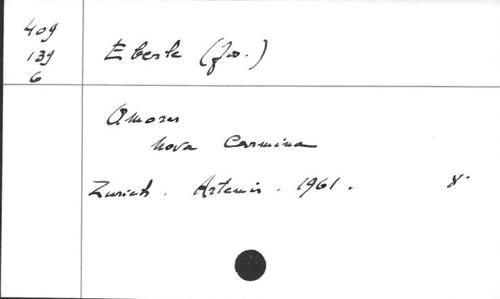 409
139
6
Eberle (Jos.)
Amores
Nova Carmina
Zurich. Artemis. 1961. 8°